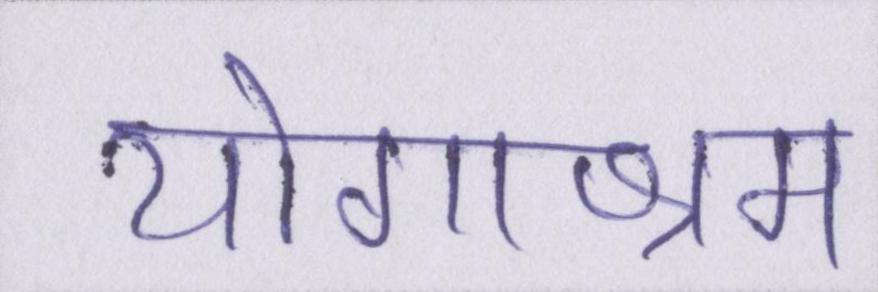 योगाश्रम